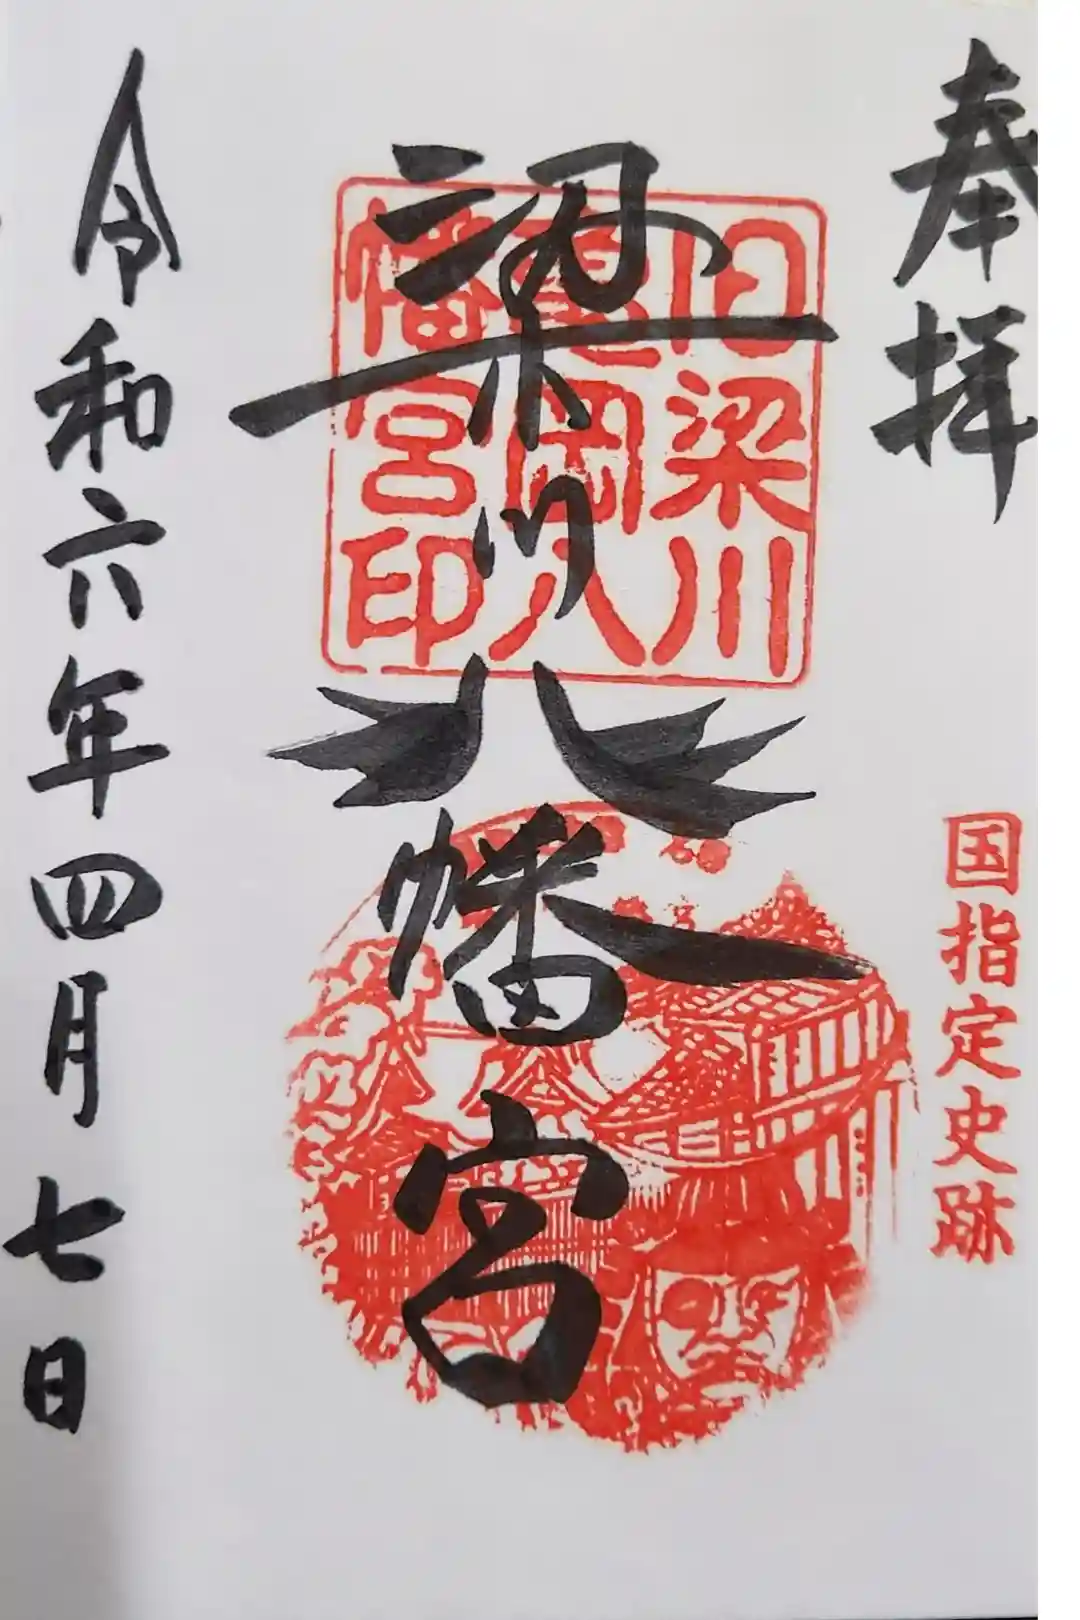 奉拝
国指定史跡
梁川八幡宮
旧梁川
亀岡八
幡宮印
令和六年四月七日